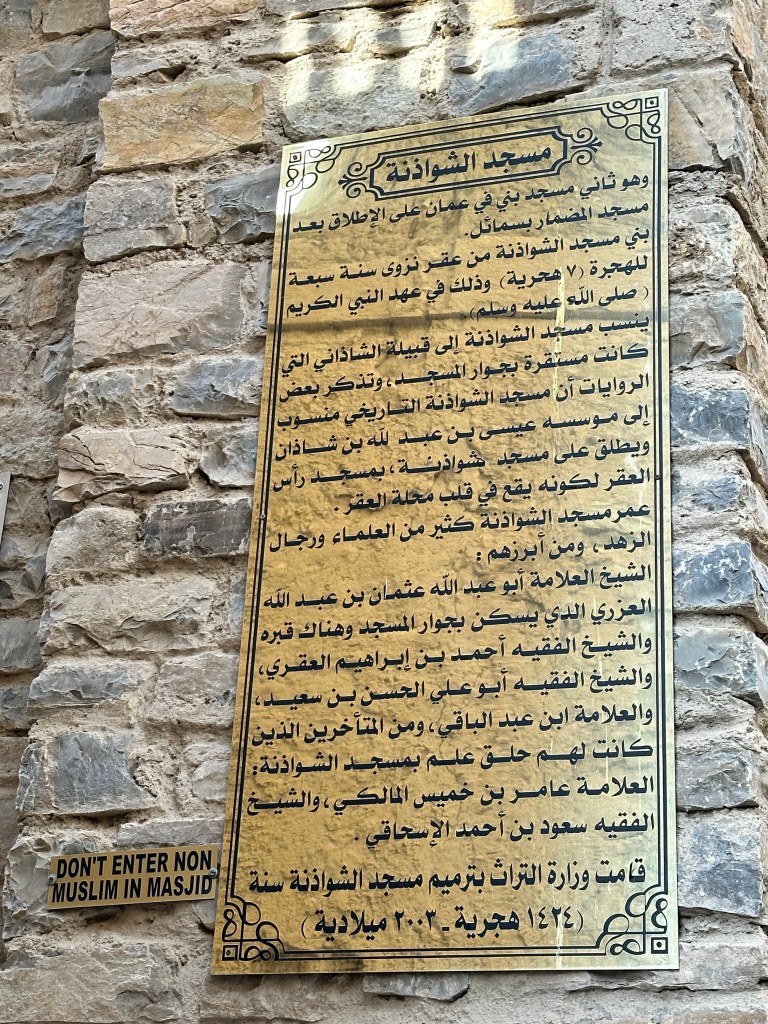 مسجد الشواذنة
وهو ثاني مسجد بني في عمان على الإطلاق بعد
مسجد المضمار بسمائل.
بني مسجد الشواذنة من عقر نزوى سنة سبعة
للهجرة (٧ هجرية) وذلك في عهد النبي الكريم
( صلى الله عليه وسلم).
ينسب مسجد الشواذنة إلى قبيلة الشاذاني التي
كانت مستقرة بجوار المسجد، وتذكر بعض
الروايات أن مسجد الشواذنة التاريخي منسوب
إلى موسسه عيسى بن عبد لله بن شاذان
ويطلق على مسجد شواذنة، بمسجد رأس
العقر لكونه يقع في قلب محلة العقر.
عمر مسجد الشواذنة كثير من العلماء ورجال
الزهد، ومن أبرزهم :
الشيخ العلامة أبو عبد الله عثمان بن عبد الله
العزري الذي يسكن بجوار المسجد وهناك قبره
والشيخ الفقيه أحمد بن إبراهيم العقري،
والشيخ الفقيه أبو علي الحسن بن سعيد،
والعلامة ابن عبد الباقي، ومن المتأخرين الذين
كانت لهم حلق علم بمسجد الشواذنة:
العلامة عامر بن خميس المالكي، والشيخ
الفقيه سعود بن أحمد الإسحاقي .
قامت وزارة التراث بترميم مسجد الشواذنة سنة
(١٤٢٤ هجرية ـ ٢٠٠٣ ميلادية )
DON'T ENTER NON
MUSLIM IN MASJID